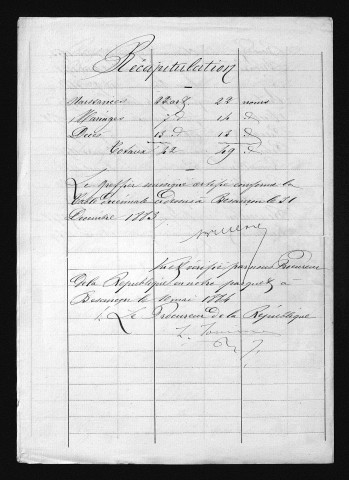 Récapitulation
Naissances 22 actes 22 noms
Mariages 7 d 14 d
Décès 13 d 13 d
Totaux 42 49 d
Le greffier soussigné certifie conforme la
Table décennale ci-dessus à Besançon le 31
Décembre 1883
Vu & vérifié par nous Procureur
de la République en notre parquet à
Besançon le 10 mai 1884
Le Procureur de la République